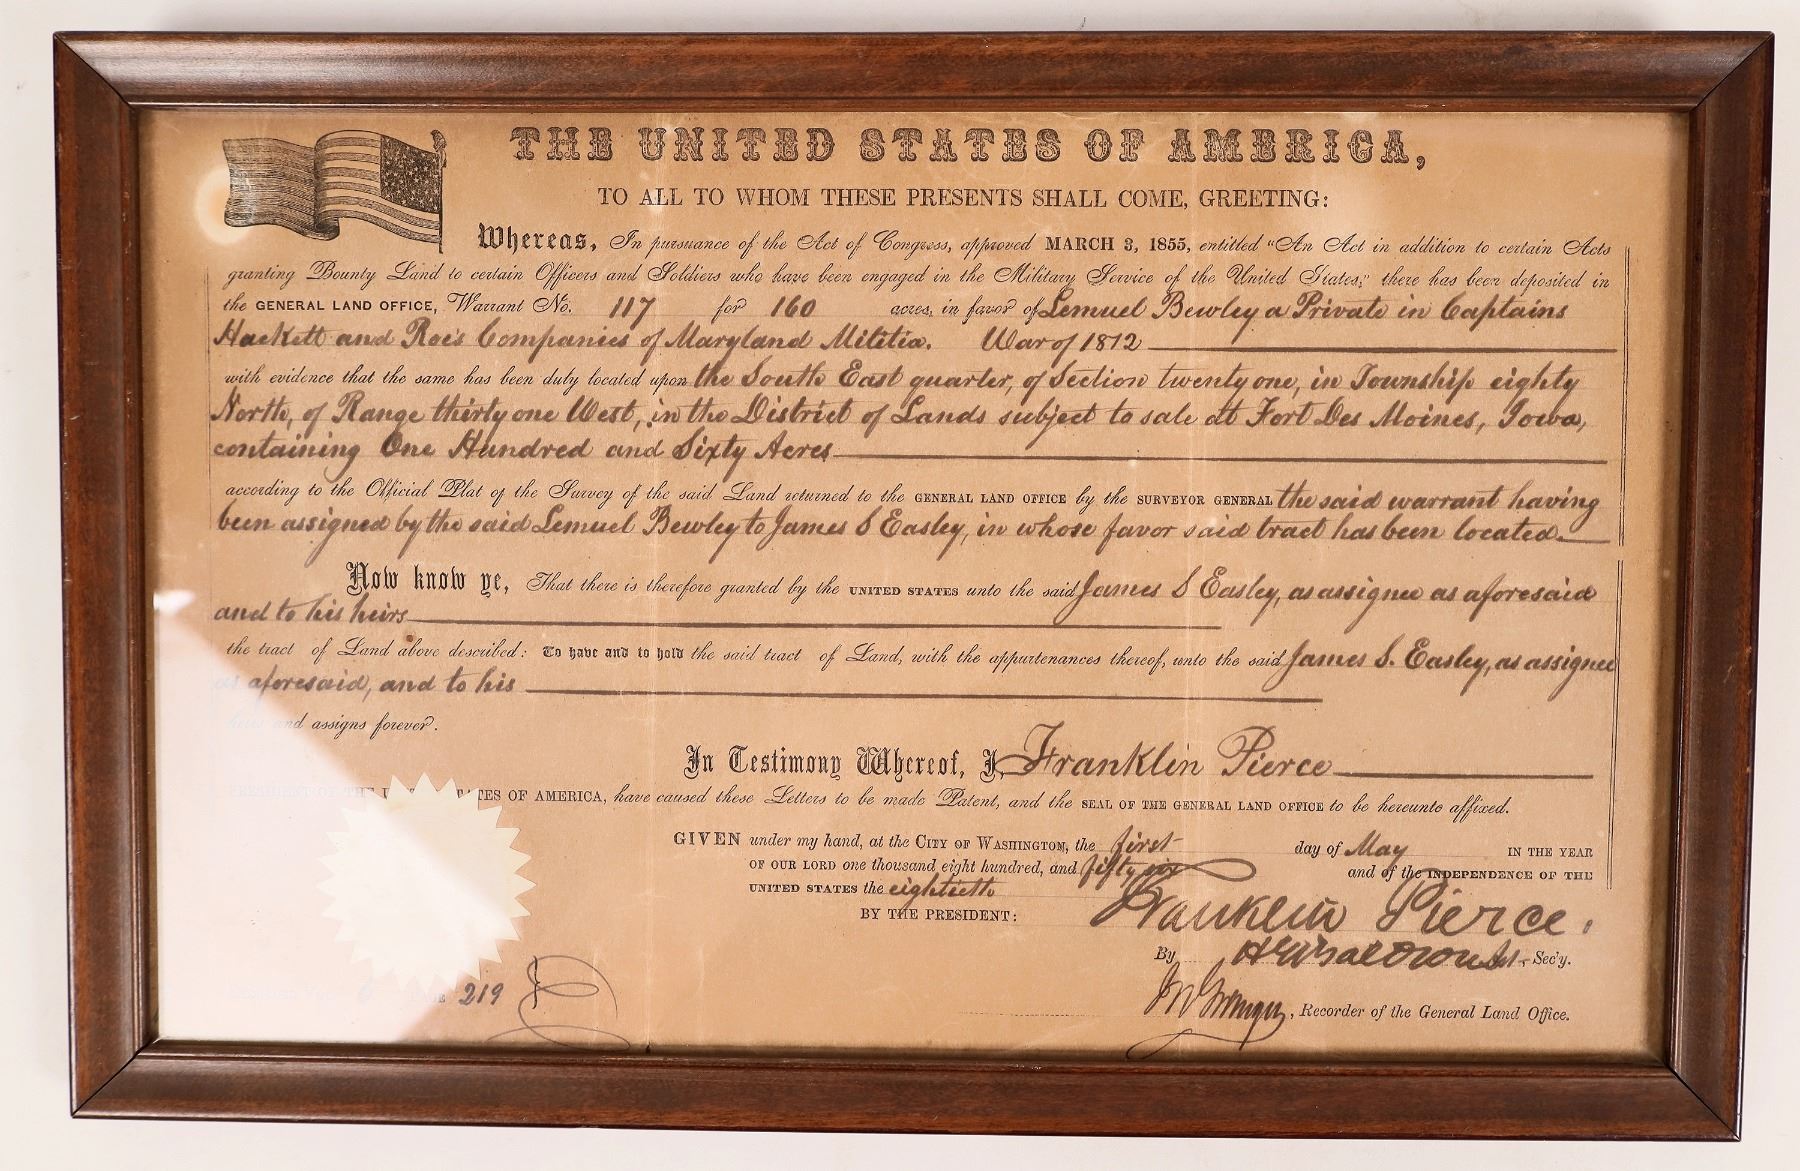 THE UNITED STATES OF AMERICA,
TO ALL TO WHOM THESE PRESENTS SHALL COME, GREETING:
Whereas, In pursuance of the Act of Congress, approved MARCH 3, 1855, entitled "An Act in addition to certain Acts
granting Bounty Land to certain Officers and Soldiers who have been engaged in the Military Service of the United States," there has been deposited in
the GENERAL LAND OFFICE, Warrant No. 117 for 160 acres, in favor of Lemuel Bewley a Private in Captains
Hackett and Roe's Companies of Maryland Militia. War of 1812
with evidence that the same has been duly located upon the South East quarter, of Section twenty one, in Township eighty
North, of Range thirty one West, in the District of Lands subject to sale at Fort Des Moines, Iowa,
containing One Hundred and Sixty Acres
according to the Official Plat of the Survey of the said Land returned to the GENERAL LAND OFFICE by the SURVEYOR GENERAL the said warrant having
been assigned by the said Lemuel Bewley to James S Easley, in whose favor said tract has been located.
Now know ye, That there is therefore granted by the UNITED STATES unto the said James S Easley, as assignee as aforesaid
and to his heirs
the tract of Land above described: To have and to hold the said tract of Land, with the appurtenances thereof, unto the said James S. Easley, as assignee
as aforesaid, and to his
heirs and assigns forever.
In Testimony Whereof, I, Franklin Pierce
PRESIDENT OF THE UNITED STATES OF AMERICA, have caused these Letters to be made Patent, and the SEAL OF THE GENERAL LAND OFFICE to be hereunto affixed.
GIVEN under my hand, at the CITY OF WASHINGTON, the first day of May IN THE YEAR
OF OUR LORD one thousand eight hundred, and fifty six and of the INDEPENDENCE OF THE
UNITED STATES the eightieth
BY THE PRESIDENT: Franklin Pierce.
By Sec'y.
219
, Recorder of the General Land Office.